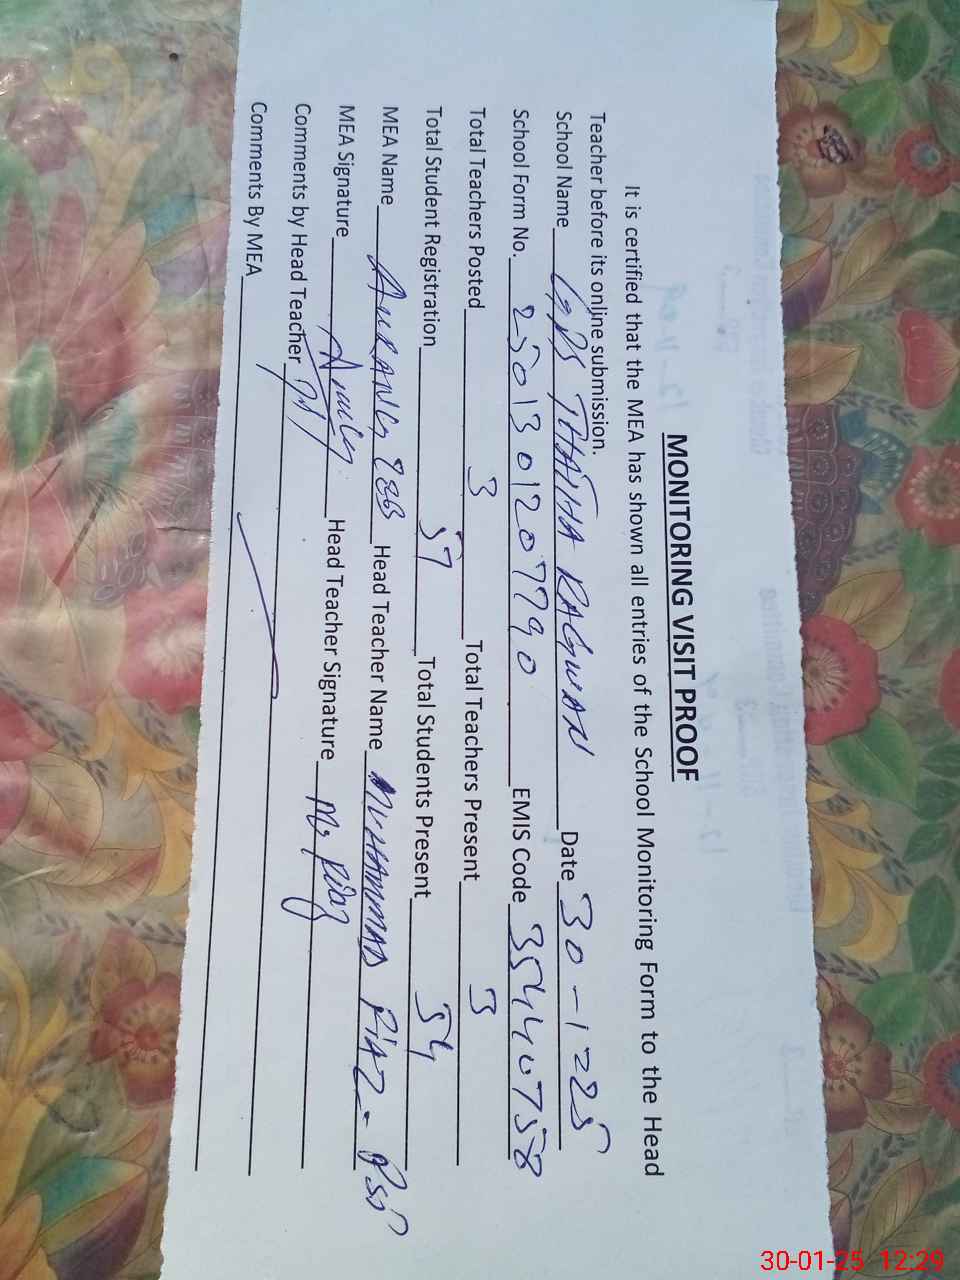 MONITORING VISIT PROOF
It is certified that the MEA has shown all entries of the School Monitoring Form to the Head
Teacher before its online submission.
School Name GPS THATHA RAGWAN Date 30-1-25
School Form No. 2501301207790 EMIS Code 35440758
Total Teachers Posted 3 Total Teachers Present 3
Total Student Registration 57 Total Students Present 54
MEA Name AURANG ZEB Head Teacher Name MUHAMMAD RIAZ - PST
MEA Signature Head Teacher Signature M. Riaz
Comments by Head Teacher
Comments By MEA
30-01-25 12:29